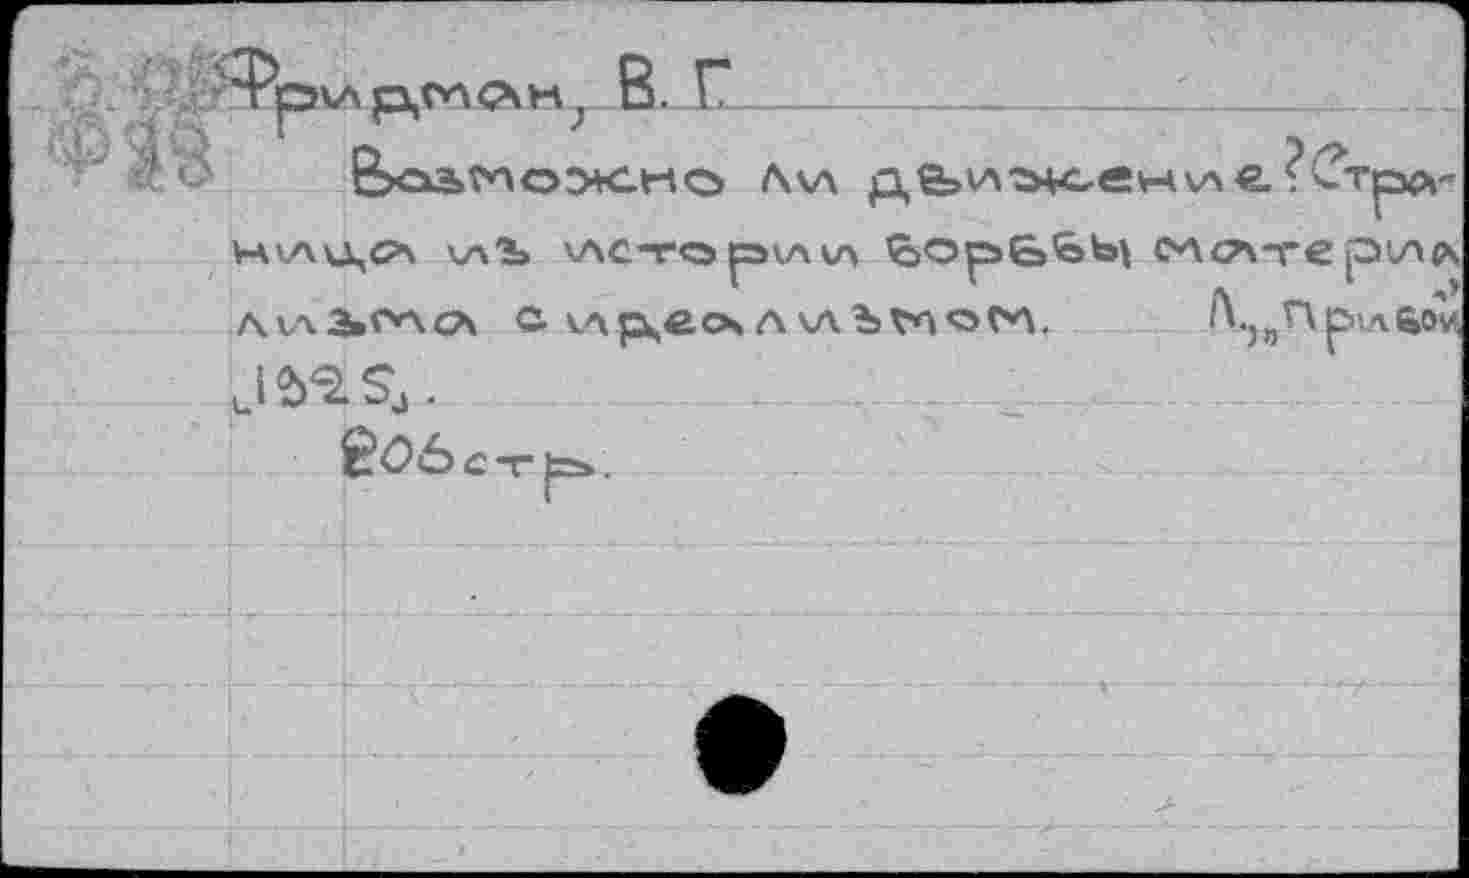 Фридман, В. Г.
Ф88
Возможно ли движение? Стра-
ница из истории борьбы материа
лизма с идеализмом. Л., „Прибой
1925,.
206 стр.